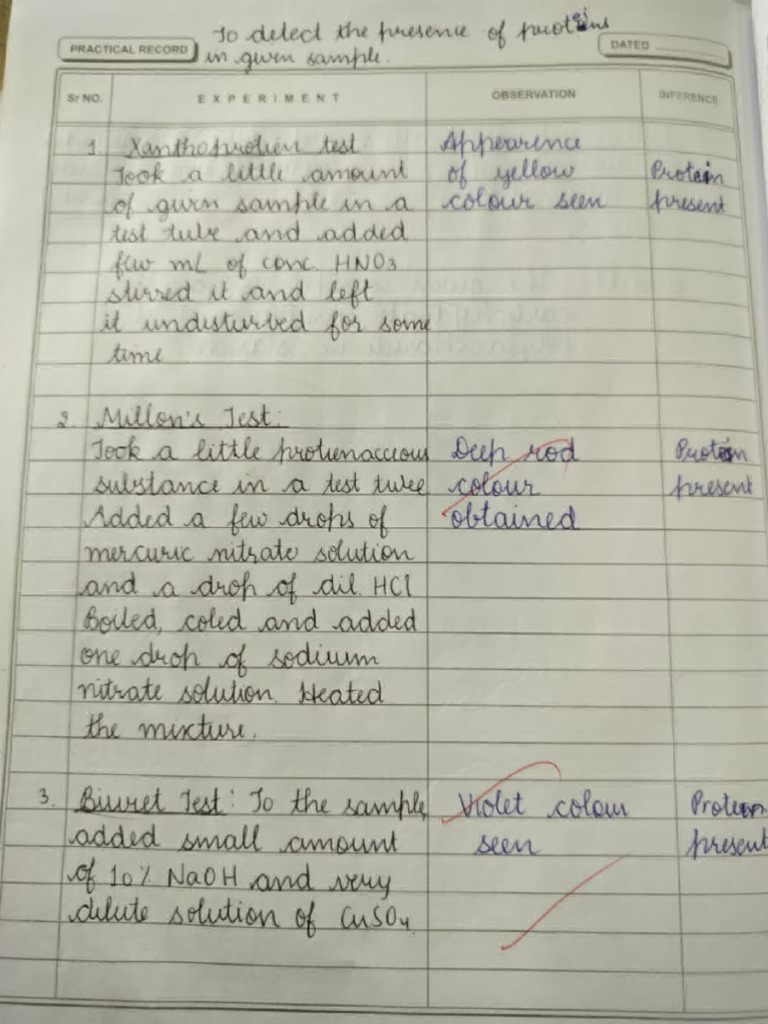 To detect the presence of proteins
PRACTICAL RECORD
in given sample.
DATED
Sr NO.
EXPERIMENT
OBSERVATION
INFERENCE
1. Xanthoprotien test
Took a little amount
of given sample in a
test tube and added
few mL of conc. HNO3
stirred it and left
it undisturbed for some
time
Appearence
of yellow
colour seen
Protein
present
2. Millon's Test:
Took a little protienaceous
substance in a test twee
Added a few drops of
mercuric nitrate solution
and a drop of dil. HCl
Boiled, coled and added
one drop of sodium
nitrate solution. Heated
the mixture.
Deep rod
colour
obtained
Protein
present
3. Biuret Test: To the sample,
added small amount
of 10% NaOH and very
dilute solution of CuSO4
Violet colour
seen
Protein
present